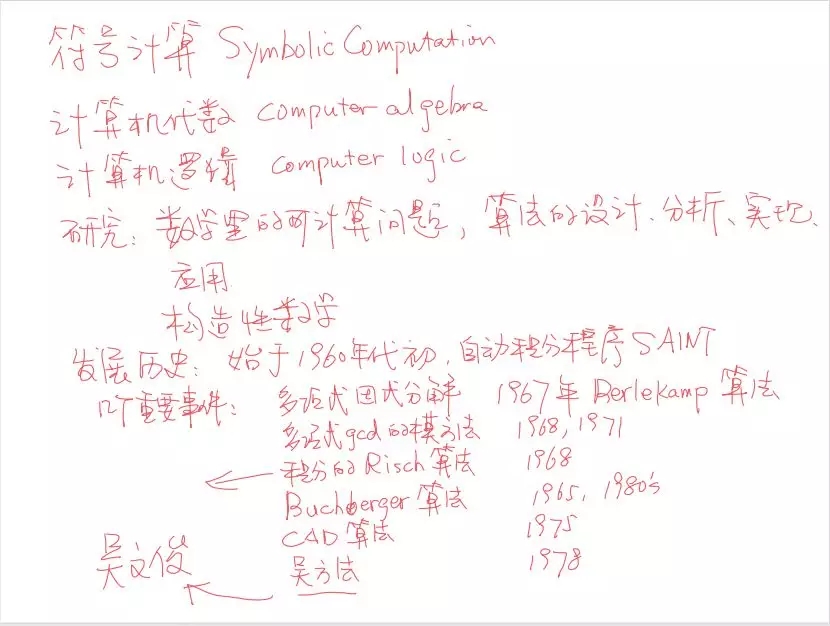 符号计算 Symbolic Computation
计算机代数 computer algebra
计算机逻辑 computer logic
研究: 数学里的可计算问题, 算法的设计、分析、实现、
应用
构造性数学
发展历史: 始于1960年代初, 自动积分程序SAINT
几个重要事件: 多项式因式分解 1967年 Berlekamp 算法
多项式gcd的模方法 1968, 1971
积分的Risch算法 1968
Buchberger算法 1965, 1980's
CAD算法 1975
吴文俊 吴方法 1978